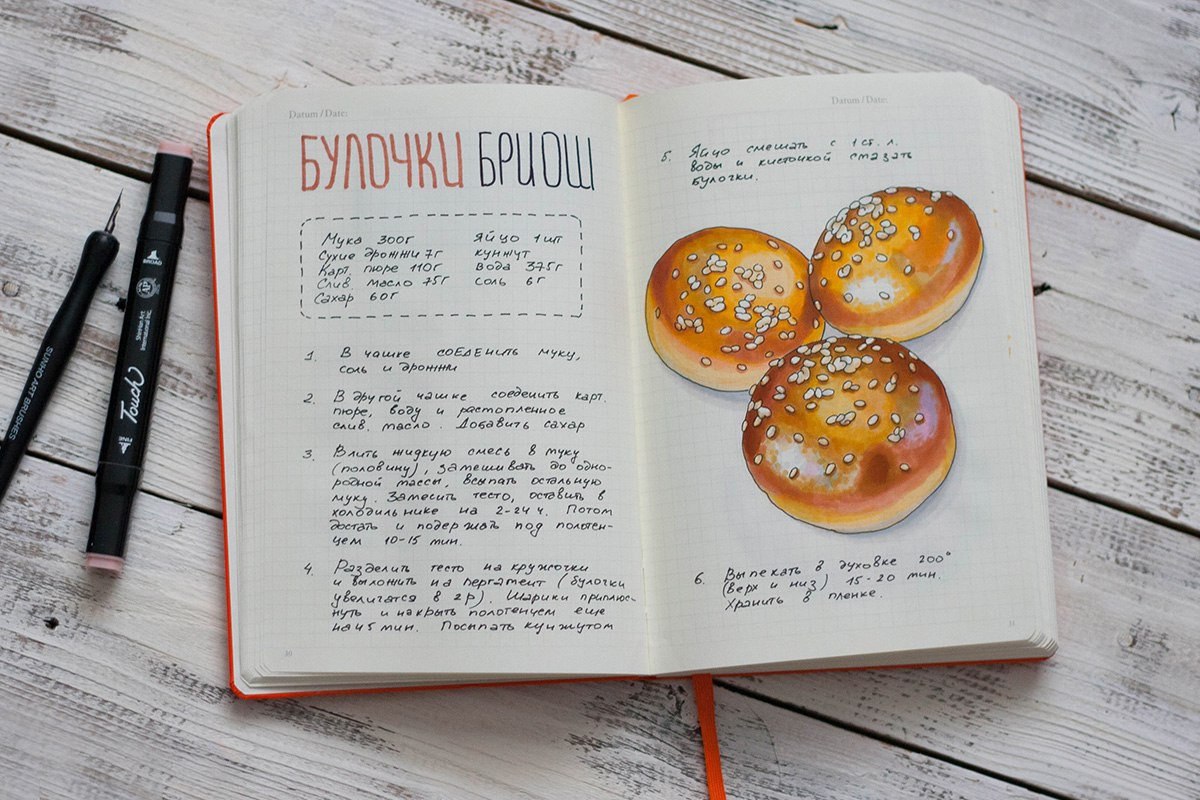 Datum / Date:
БУЛОЧКИ БРИОШ
Мука 300г
Сухие дрожжи 7г
Карт. пюре 110г
Слив. масло 75г
Сахар 60г
Яйцо 1шт
кунжут
Вода 375г
соль 6г
1. В чашке соеденить муку,
соль и дрожжи
2. В другой чашке соеденить карт.
пюре, воду и растопленное
слив. масло. Добавить сахар
3. Влить жидкую смесь в муку
(половину), замешивать до одно-
родной массы, всыпать остальную
муку. Замесить тесто, оставить в
холодильнике на 2-24 ч. Потом
достать и подержать под полотен-
цем 10-15 мин.
4. Разделить тесто на кружочки
и выложить на пергамент (булочки
увеличатся в 2р). Шарики приплюс-
нуть и накрыть полотенцем еще
на 45 мин. Посыпать кунжутом
30
Datum / Date:
5. Яйцо смешать с 1 ст. л.
воды и кисточкой смазать
булочки.
6. Выпекать в духовке 200°
(верх и низ) 15-20 мин.
Хранить в пленке.
31
SUNHO ART BRUSHES
BROAD
ShinHan Art
International Inc.
Touch
FINE